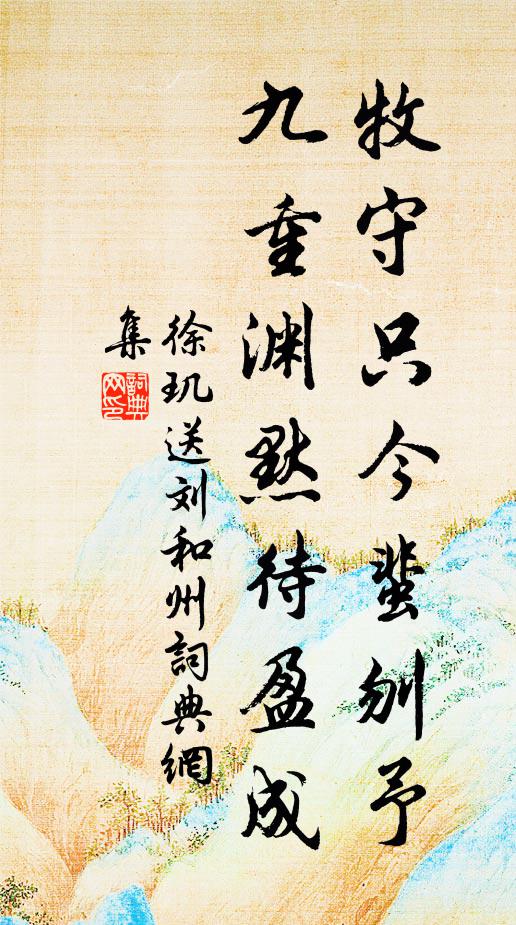 牧守只今蜚刎予
九重渊默待盈成
徐玑送刘和州詞典網
集
詞典
网印